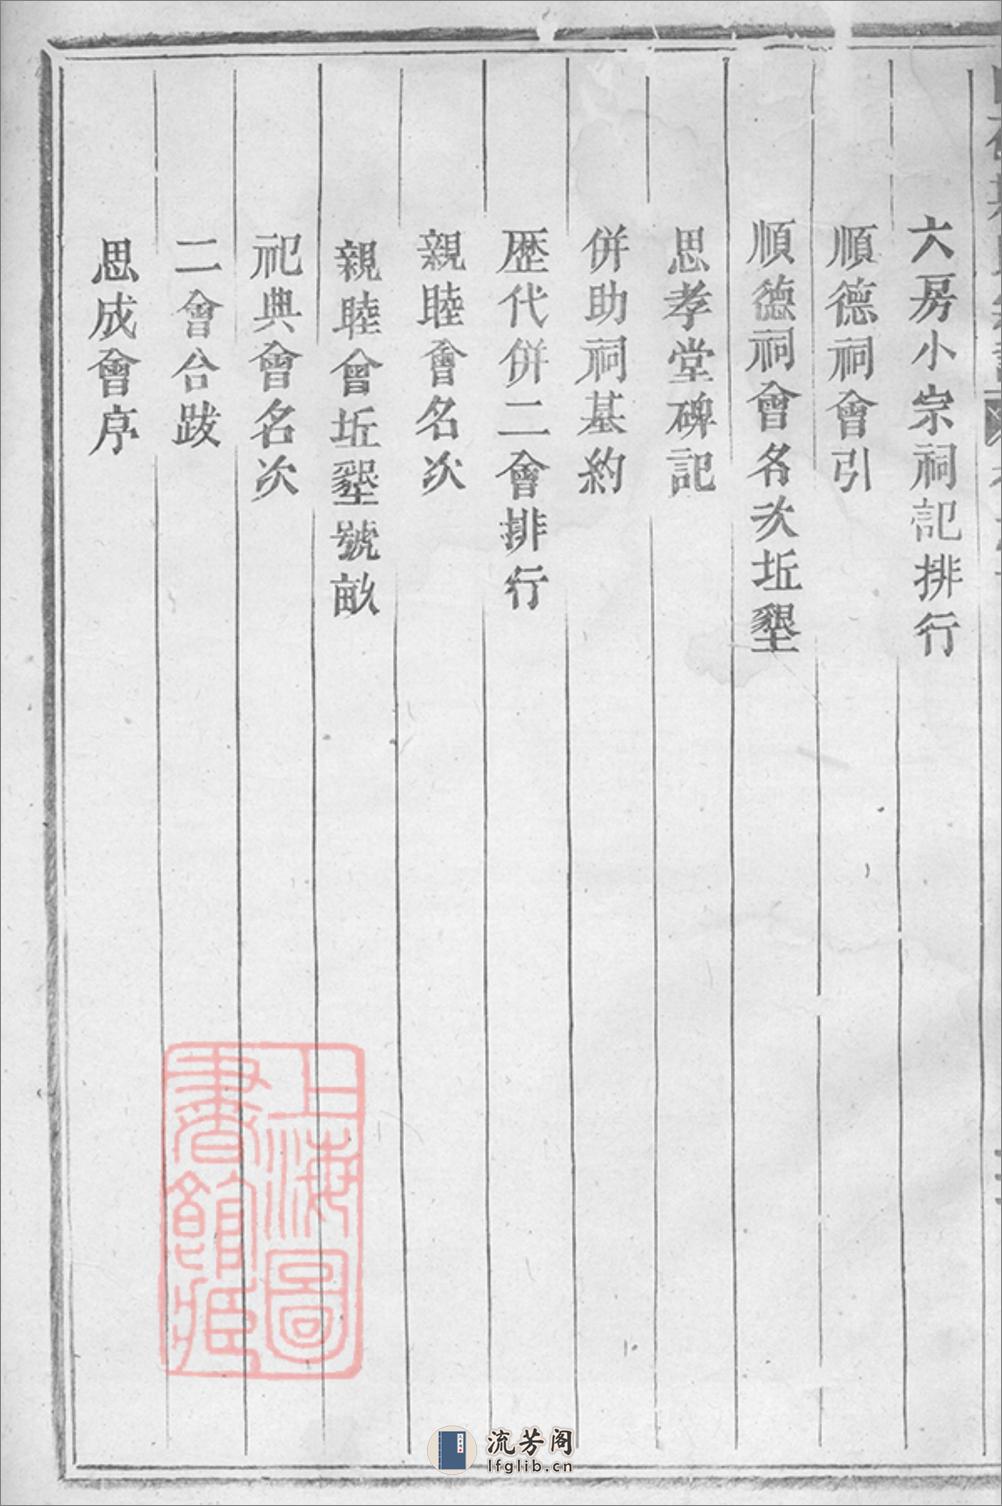 六房小宗祠記排行
順德祠會引
順德祠會名次坵墾
思孝堂碑記
併助祠基約
歷代併二會排行
親睦會名次
親睦會坵墾號畝
祀典會名次
二會合跋
思成會序
上海圖
書館藏
流芳阁
lfglib.cn